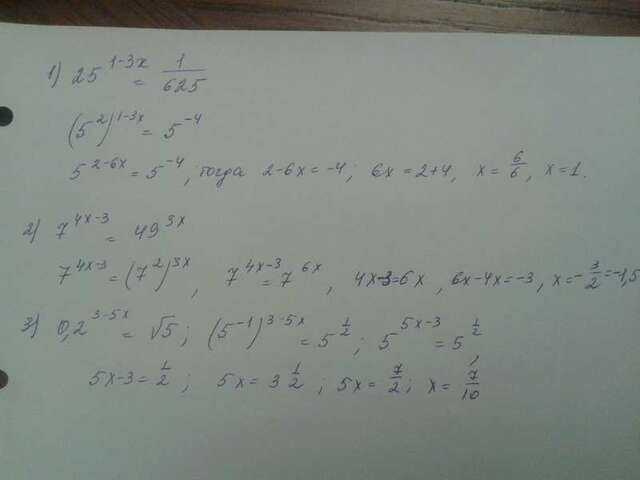 1) 25^(1-3x) = 1/625
(5^2)^(1-3x) = 5^(-4)
5^(2-6x) = 5^(-4); тогда 2-6x = -4; 6x = 2+4, x = 6/6, x = 1.
2) 7^(4x-3) = 49^(3x)
7^(4x-3) = (7^2)^(3x), 7^(4x-3) = 7^(6x), 4x-3 = 6x, 6x-4x = -3, x = -3/2 = -1,5
3) 0,2^(3-5x) = √5; (5^(-1))^(3-5x) = 5^(1/2); 5^(5x-3) = 5^(1/2),
5x-3 = 1/2; 5x = 3 1/2; 5x = 7/2; x = 7/10